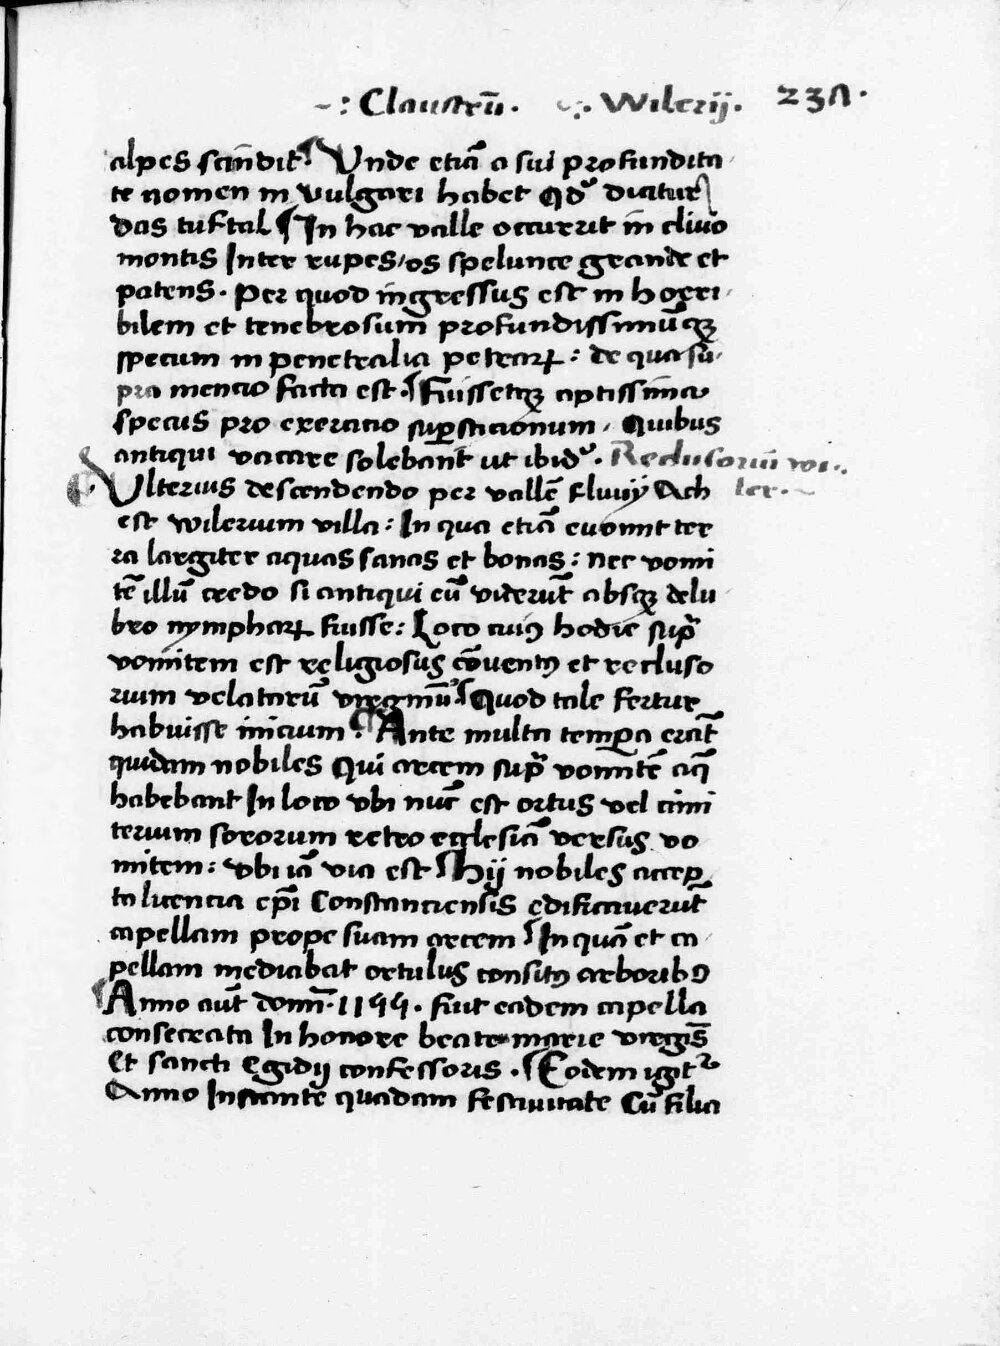 ~: Claustrū. ~:. Wilerij. 231.
alpes scīndit. Vnde etiā a sui profundita-
te nomen in vulgari habet Qđ diatur
das tuftal ¶ In hac valle occurrit in clivo
montis Inter rupes/os spelunce grande et
patens. Per quod ingressus est in horri-
bilem et tenebrosum profundissimūqꝫ
specum in penetralia petraꝝ: de qua su-
pra mencio facta est. ¶ Fuissetqꝫ aptissima
specus pro exercicio suꝑsticionum. Quibus
antiqui vacare solebant ut ibiđ. Reclusoriū wi-
ler.
Vlterius descendendo per vallē fluvij Ach
est wilerium villa: In qua etiā evomit ter
ra largiter aquas sanas et bonas: nec vomi
tē illū credo si antiqui eū viderūt absqꝫ delu
bro nymphaꝝ fuisse: Loco cuiꝰ hodie sup̄
vomitem est religiosus cōventꝰ et recluso
rium velatarū virginū. ¶ Quod tale fertur
habuisse inicium. ¶ Ante multa tempa erāt
quidam nobiles Qui arcem sup̄ vomitē aq̄
habebant In loco vbi nūc est ortus vel cimi
terium sororum retro ecclesiā versus vo
mitem: vbi iā via est ¶ Hij nobiles accep
ta licencia ep̄i Constanciensis edificaverūt
capellam prope suam arcem ¶ In quā et ca-
pellam mediabat ortulus consitꝰ arboribꝰ
¶ Anno aūt domī. 1155. fuit eadem capella
consecrata In honore beate marie virgīs
Et sancti Egidij confessoris. ¶ Eodem igit᷑
Anno Instante quadam festivitate Cū filia